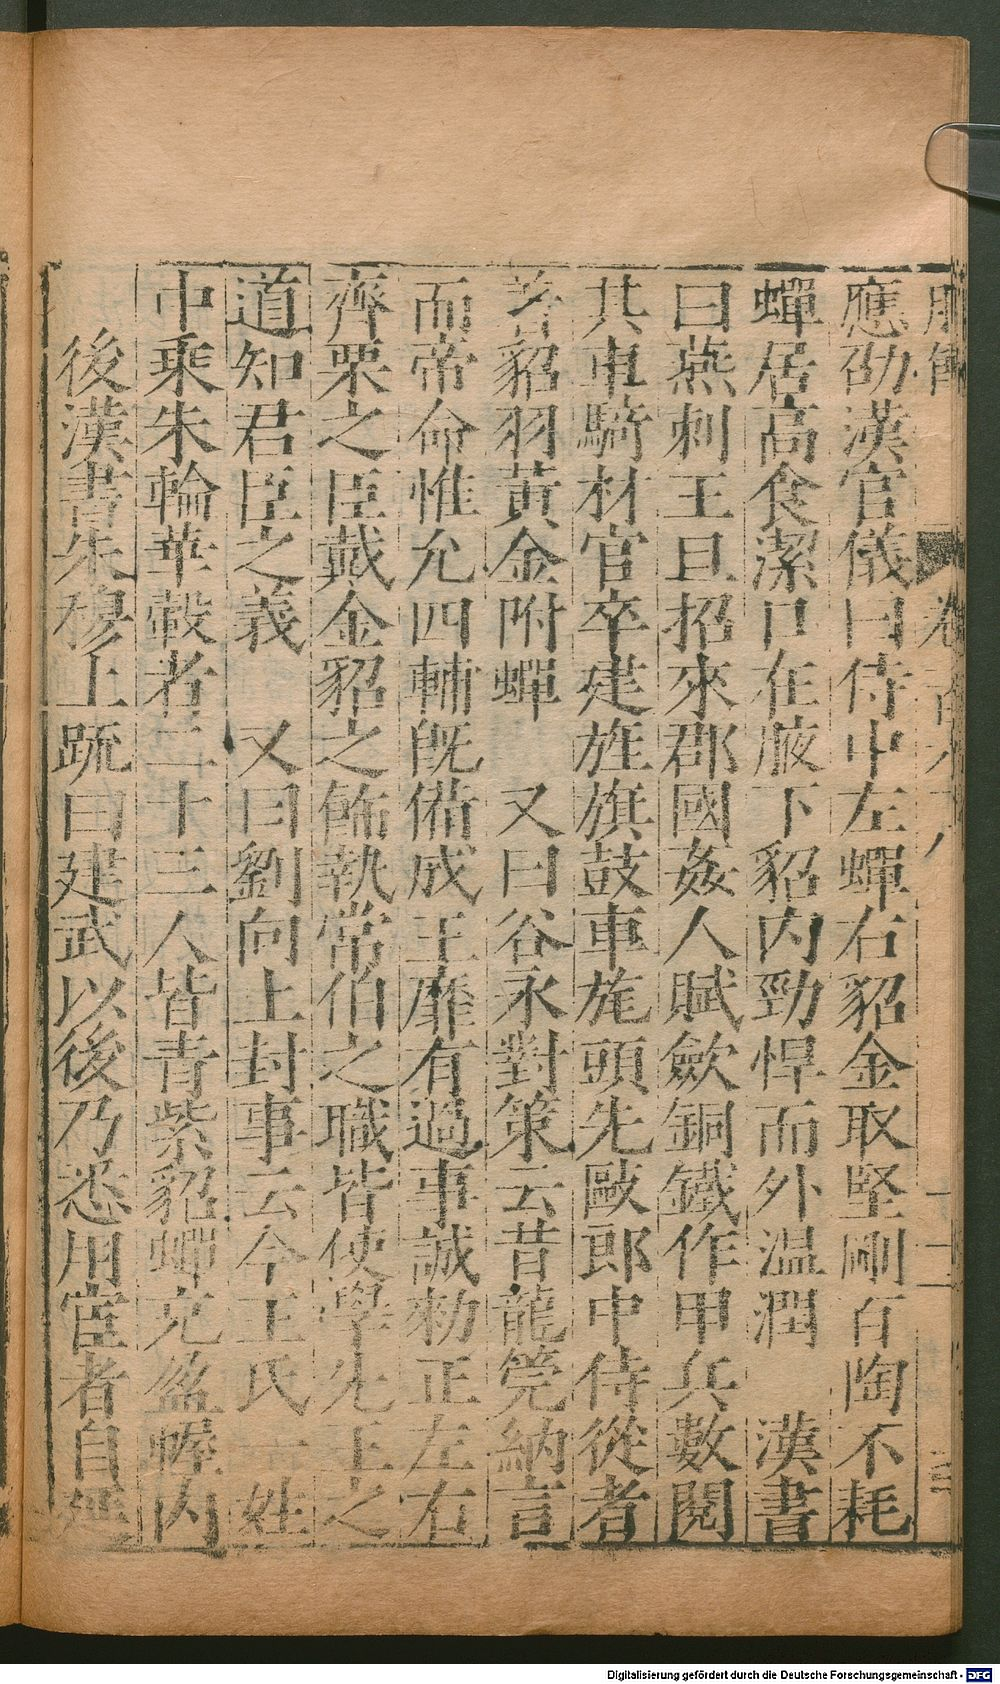 應劭漢官儀曰侍中左蟬右貂金取堅剛百陶不耗
蟬居高食潔口在腋下貂內勁悍而外溫潤　漢書
曰燕刺王旦招來郡國姦人賦斂銅鐵作甲兵數閱
其車騎材官卒建旌旗鼓車旄頭先敺郎中侍從者
著貂羽黃金附蟬　又曰谷永對策云昔龍筦納言
而帝命惟允四輔旣備成王靡有過事誠勑正左右
齊栗之臣戴金貂之飾執常伯之職皆使學先王之
道知君臣之義　又曰劉向上封事云今王氏一姓
中乘朱輪華轂者二十三人皆青紫貂蟬充盈幄內
後漢書朱穆上䟽曰建武以後乃悉用宦者自延
Digitalisierung gefördert durch die Deutsche Forschungsgemeinschaft - DFG